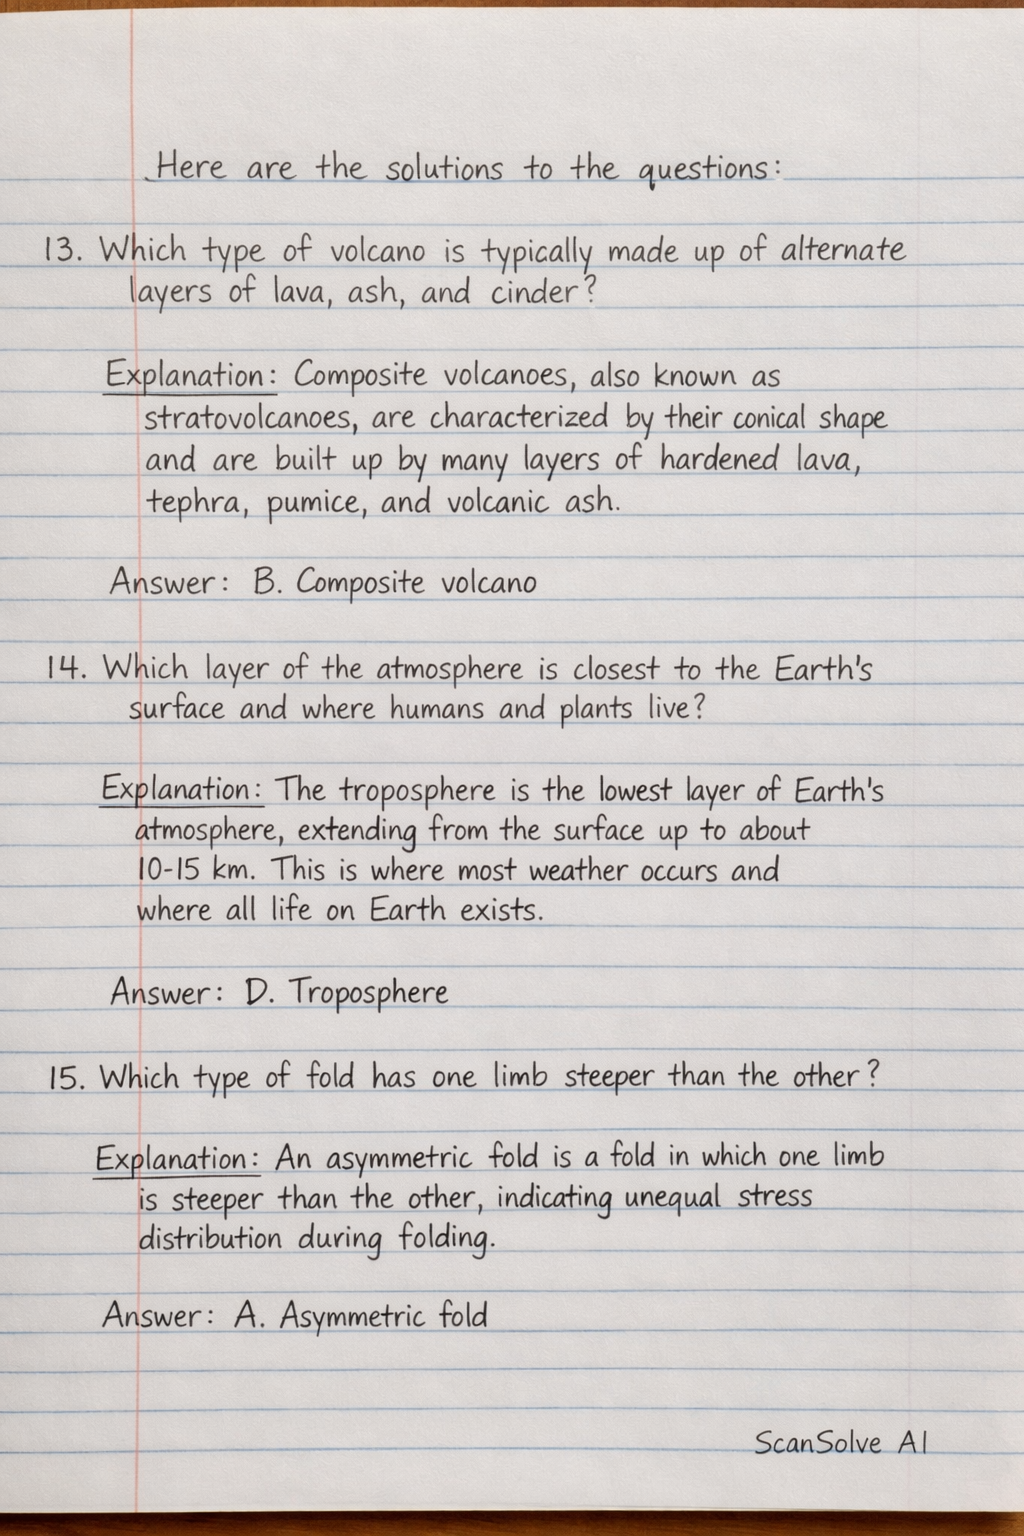 Here are the solutions to the questions:
13. Which type of volcano is typically made up of alternate
layers of lava, ash, and cinder?
Explanation: Composite volcanoes, also known as
stratovolcanoes, are characterized by their conical shape
and are built up by many layers of hardened lava,
tephra, pumice, and volcanic ash.
Answer: B. Composite volcano
14. Which layer of the atmosphere is closest to the Earth's
surface and where humans and plants live?
Explanation: The troposphere is the lowest layer of Earth's
atmosphere, extending from the surface up to about
10-15 km. This is where most weather occurs and
where all life on Earth exists.
Answer: D. Troposphere
15. Which type of fold has one limb steeper than the other?
Explanation: An asymmetric fold is a fold in which one limb
is steeper than the other, indicating unequal stress
distribution during folding.
Answer: A. Asymmetric fold
ScanSolve AI